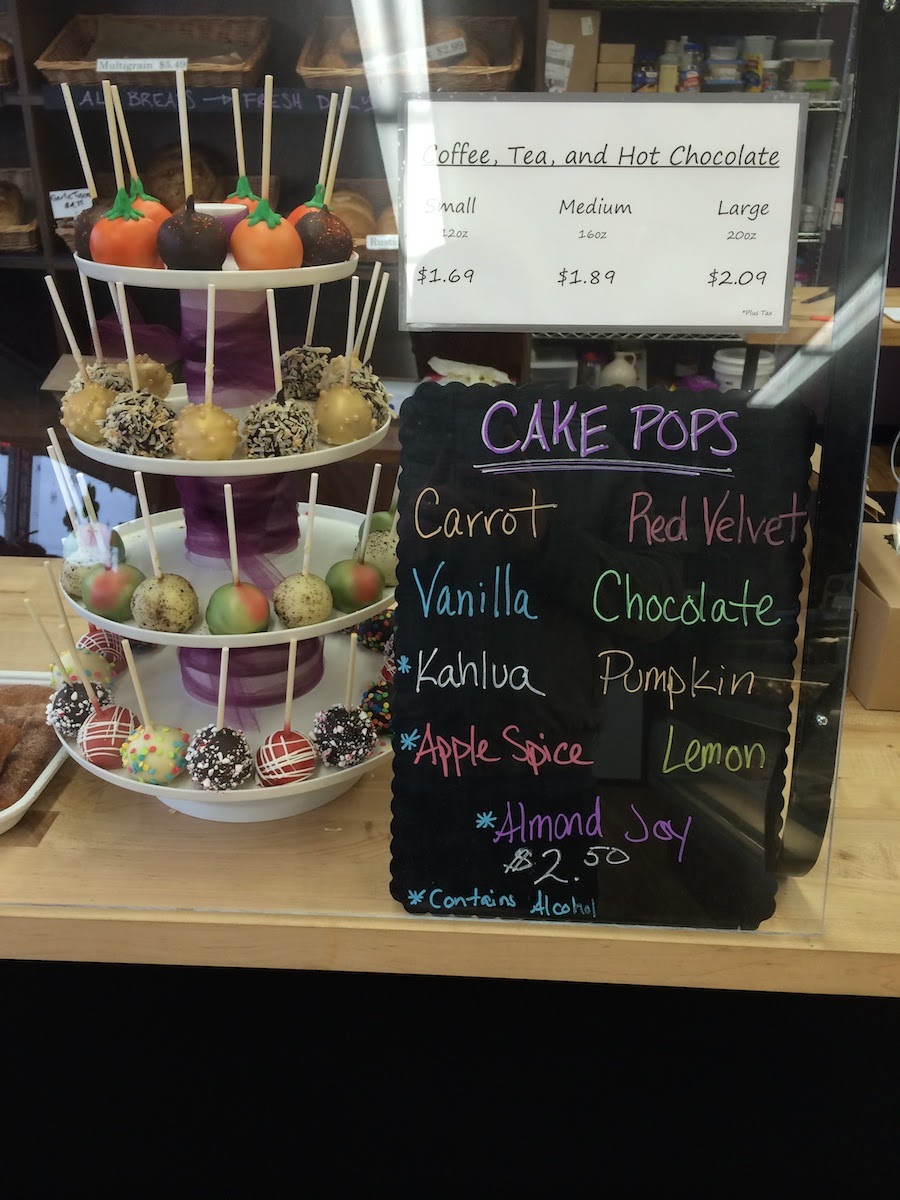 Multigrain $5.49
$2.99
ALL BREADS → FRESH DAILY
$4.75
Rustic
Coffee, Tea, and Hot Chocolate
Small Medium Large
12oz 16oz 20oz
$1.69 $1.89 $2.09
*Plus Tax
CAKE POPS
Carrot Red Velvet
Vanilla Chocolate
*Kahlua Pumpkin
*Apple Spice Lemon
*Almond Joy
$2.50
*Contains Alcohol